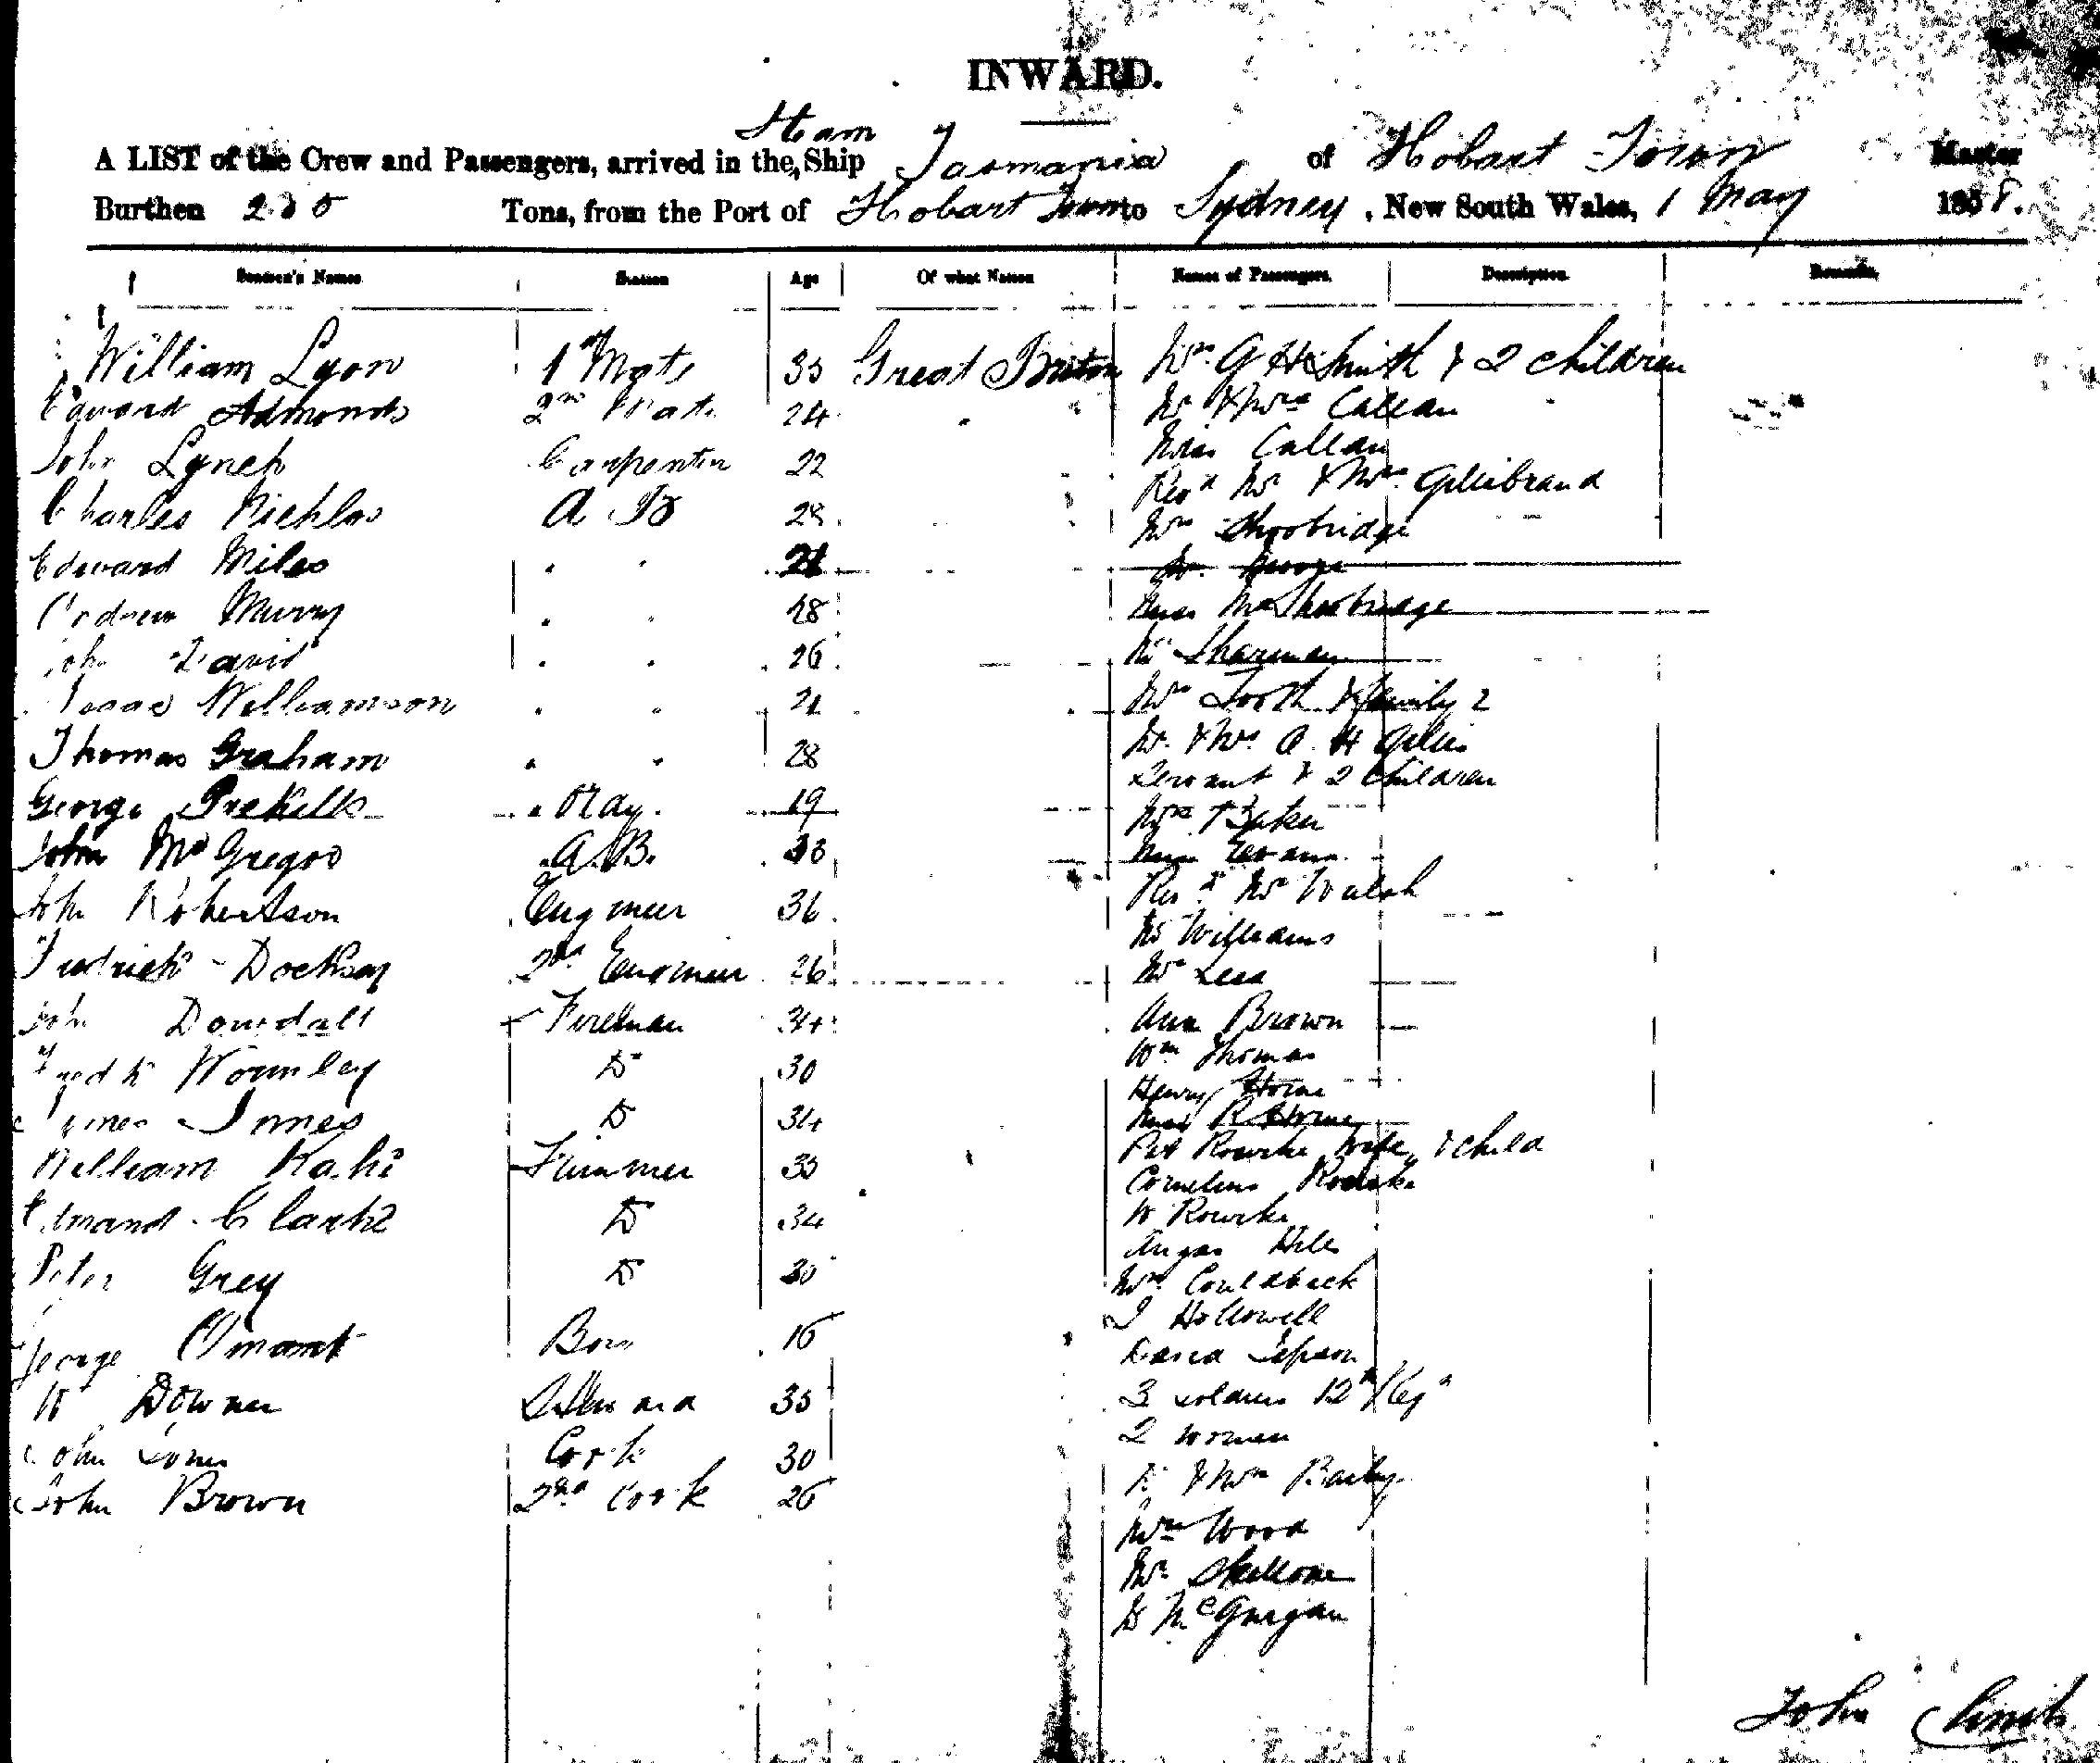 INWARD.
Steam
A LIST of the Crew and Passengers, arrived in the Ship Tasmania of Hobart Town Master
Burthen Tons, from the Port of Hobart Town to Sydney, New South Wales, 1 May 1858.
Seamen's Names Station Age Of what Nation Names of Passengers. Description. Remarks.
William Lyon 1st Mate 35 Great Britain Mrs. G H Smith & 2 children
Edward Admonds 2nd Mate 24 Mr & Mrs Callan
John Lynch Carpenter 22 Miss Callan
Charles Nichlas A B 28 Revd Mr & Mrs Gellibrand
Edward Miles Mrs Shoobridge
Andrew Murry 28 Miss Shoobridge
John David 26 Mr Sharman
Isaac Williamson 21 Mrs Tooth & family 2
Thomas Graham 28 Mr. & Mrs A. H Gillis
Servant & 2 Children
George 19 Mrs Baker
John McGregor A.B. Miss Evans
John Robertson Engineer 36 Revd Mr Walsh
Mr Williams
Fredrick Docksey 2nd Engineer 26 Mr Lees
John Dowdall Fireman 34 Ann Brown
Fredk Wormley Do 30 Wm Thomas
Henry Horne
James Innes Do 34 Miss R Horne
William Trimmer 35 Pat Rourke Wife & child
Cornelius Rourke
Edmand Clarke Do 34 W Rourke
Angas
Peter Grey Do 30 Mrs
J Hollowell
George Boy 16 David Jepson
W Downer Steward 35 3 soldiers 12th Regt
John Cook 30 2 women
John Brown 2nd Cook 26 & Mrs Baily
Mrs Wood
Mr.
McGurgan
John Clinch